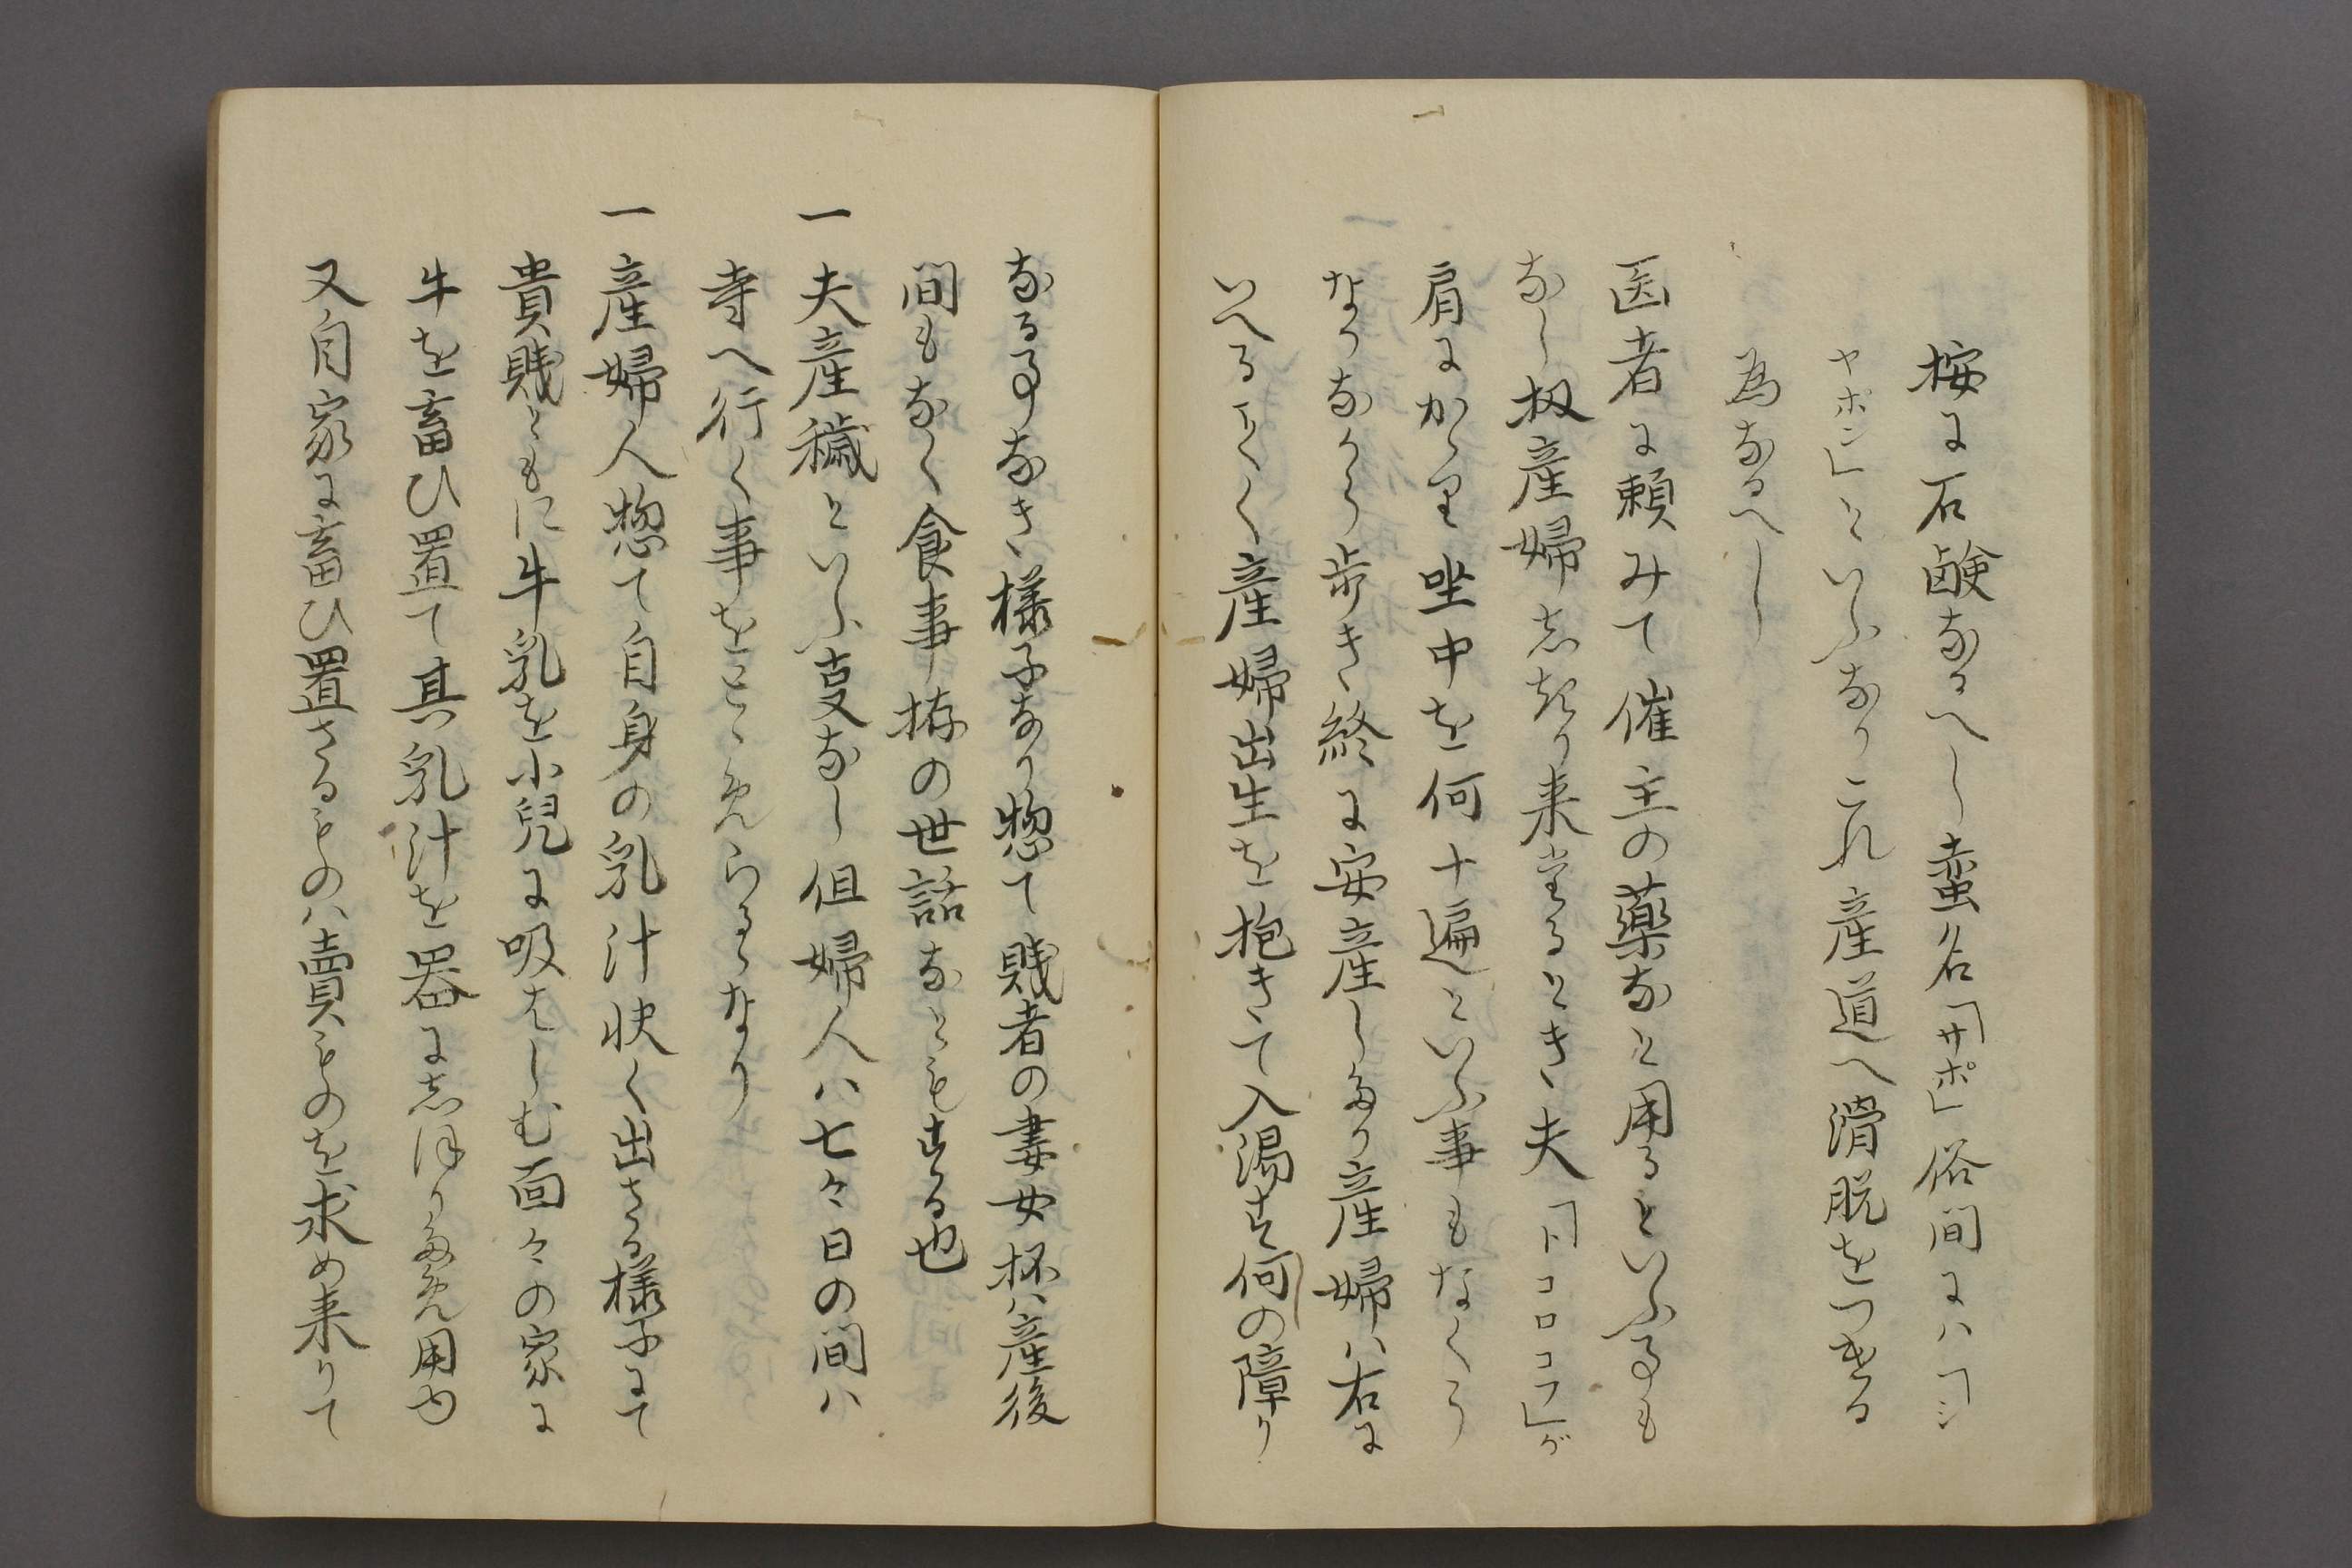 按に石鹸なるへし蛮名「サポ」俗間にハ「シ
ヤボン」といふなりこれ産道へ滑脱をつける
為なるへし
医者に頼みて催主の薬なと用るといふ事も
なし扨産婦志きり来たるとき夫「トコロコフ」が
肩にかゝり坐中を何十遍といふ事もなくう
なりなから歩き終に安産しめり産婦ハ右に
いへることく産婦出生を抱きて入湯す何の障り
なる事なき様子なり惣て賎者の妻女抔ハ産後
間もなく食事拵の世話なともする也
一夫産穢といふ事なし但婦人ハ七々日の間ハ
寺へ行く事をとゝめらるゝなり
一産婦人惣て自身の乳汁快く出さる様子にて
貴賎ともに牛乳を小兒に吸はしむ面々の家に
牛を畜ひ置て其乳汁を器に志ほりため用ゆ
又自家に畜ひ置さるものハ賣ものを求め来りて